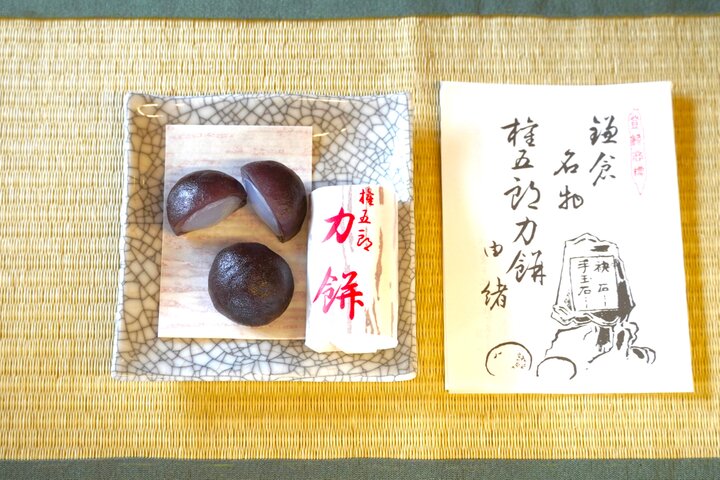 権五郎
力餅
鎌倉
名物
権五郎力餅
由緒
袂石
手玉石